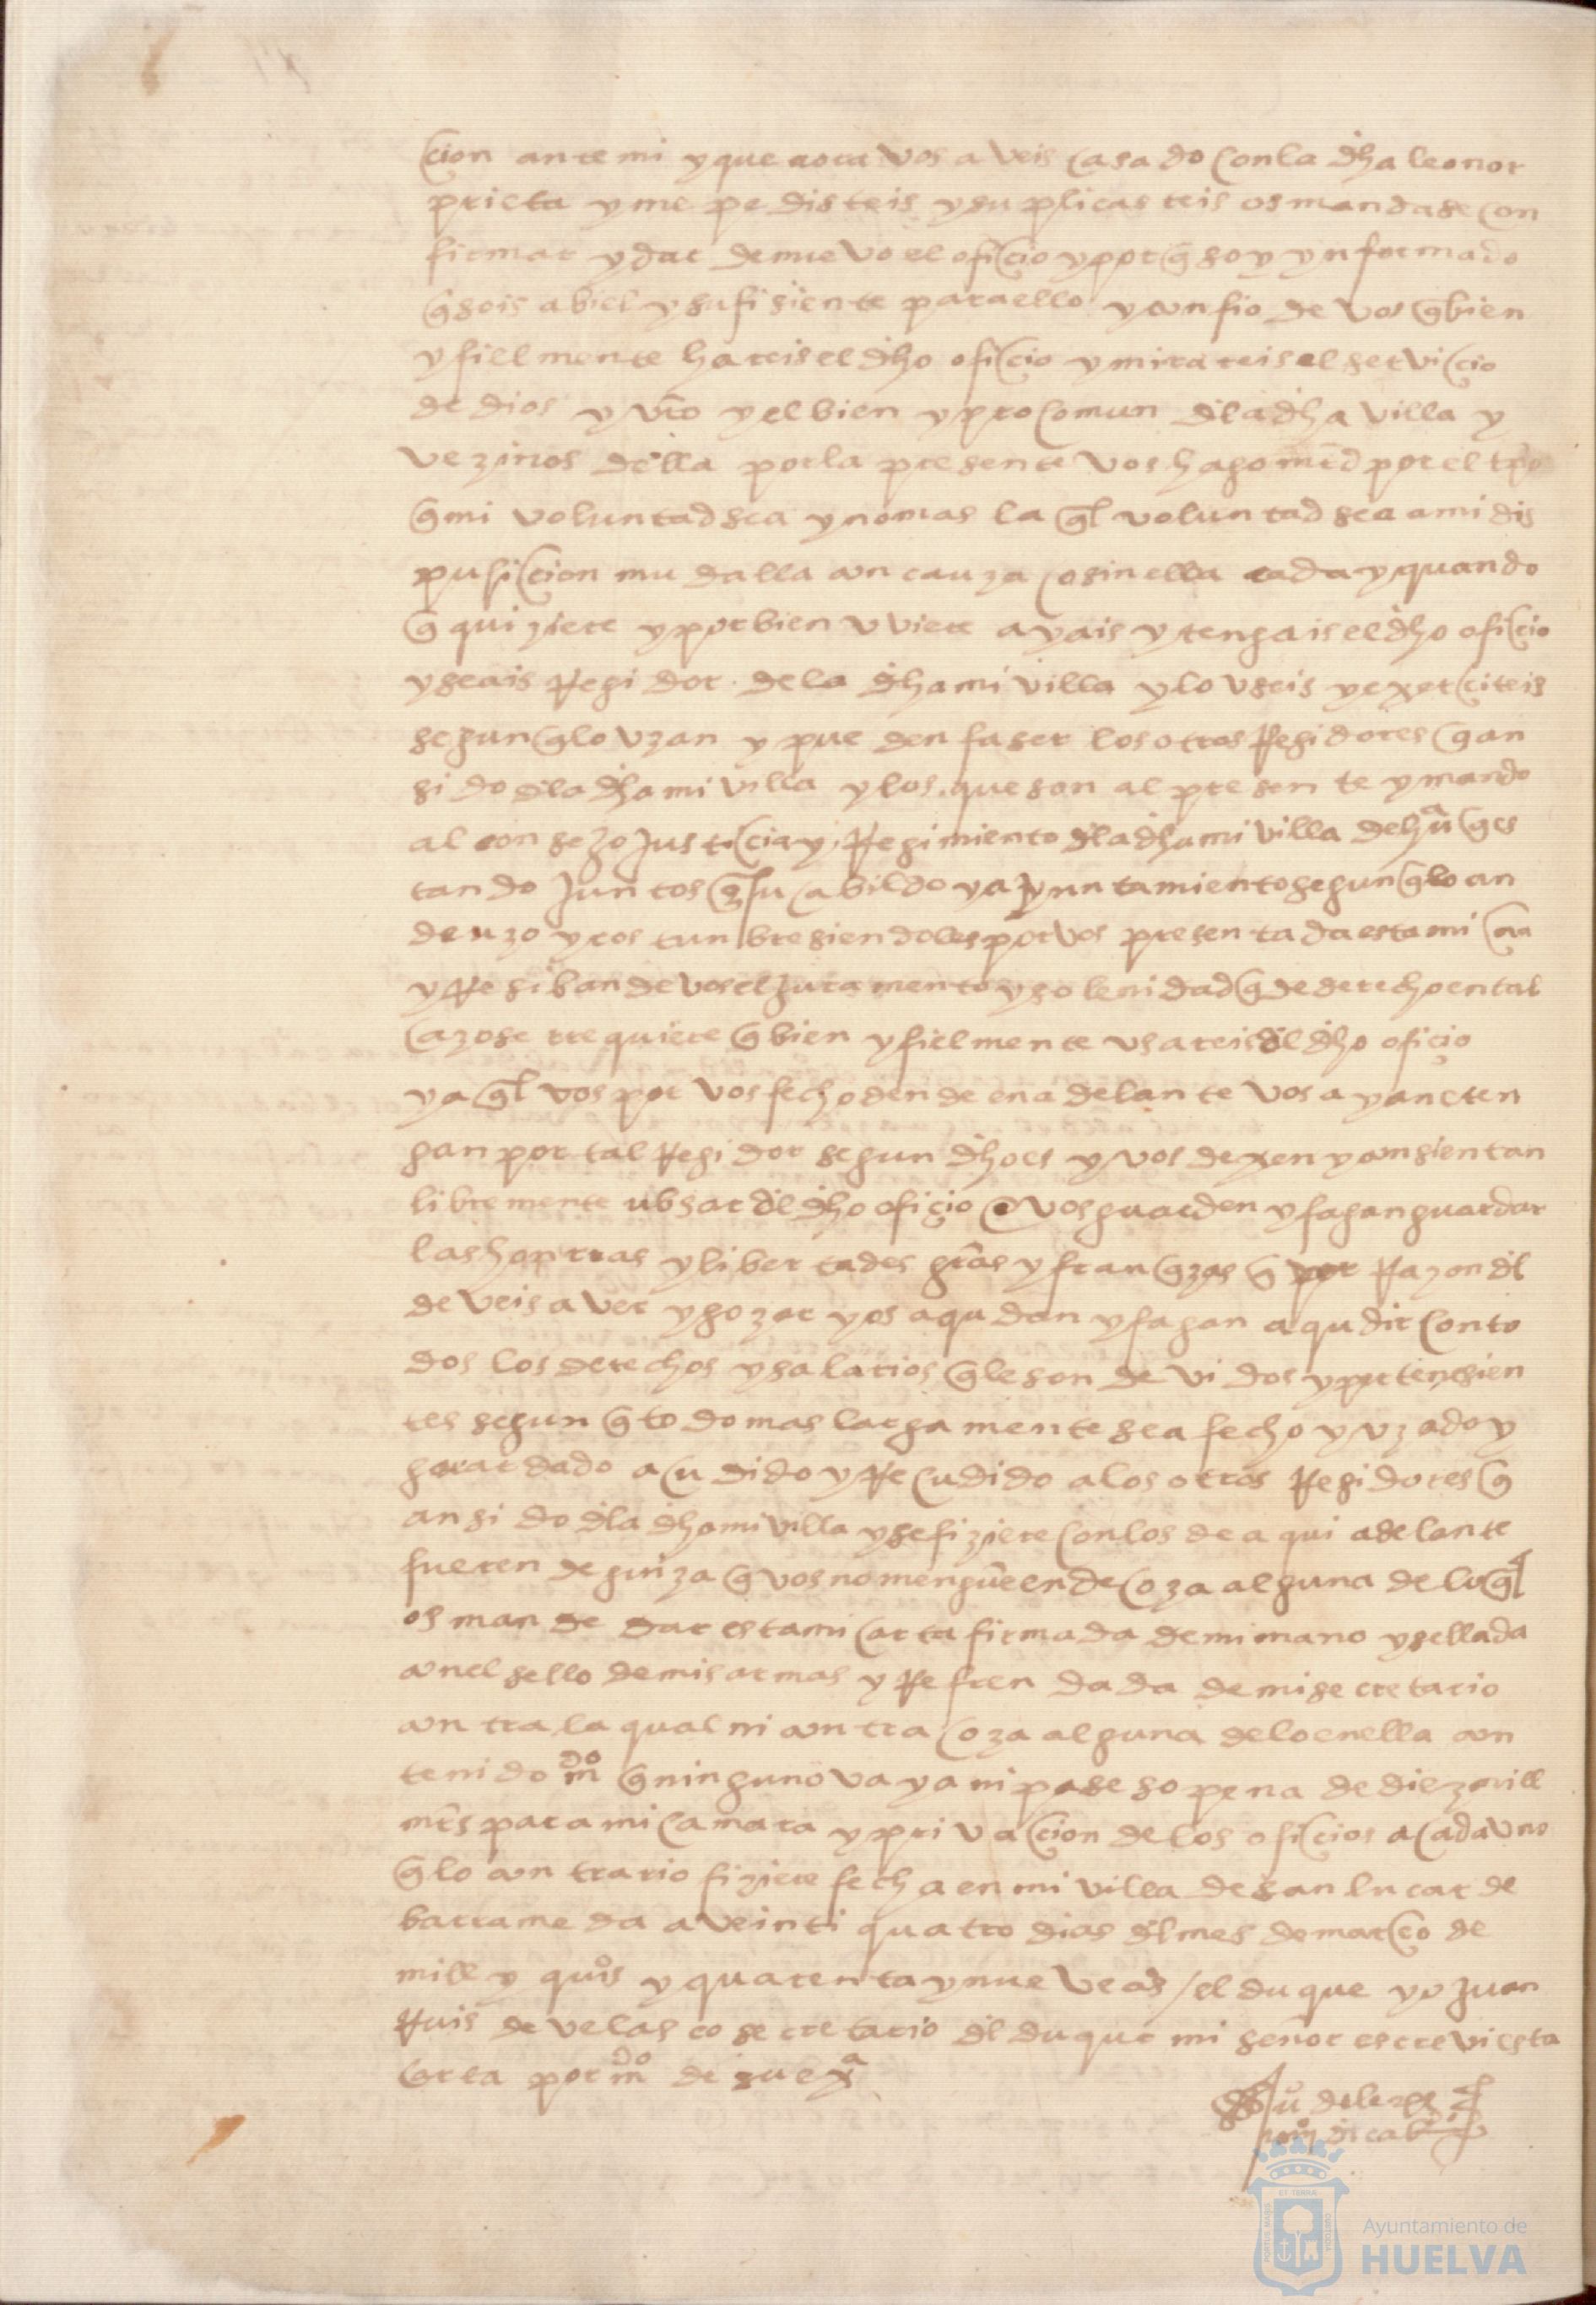 cion ante mi y que aora vos aveis casado con la dha leonor
prieta y me pedisteis y suplicasteis os mandase con
firmar y dar de nuevo el oficio y por q soy ynformado
q sois abiel y sufisiente para ello y confio de vos q bien
y fielmente hareis el dho oficio y mirareis el servicio
de dios y vro y el bien y pro comun dla dha villa y
vezinos della por la presente vos hago md por el tpo
q mi voluntad sea y nomas la ql voluntad sea a mi dis
pusicion mudalla con cauza o sin ella cada y quando
q quiziere y por bien uviere ayais y tengais el dho oficio
y seais Regidor de la dha mi villa y lo useis y exerciteis
segun q lo uzan y pueden faser los otros Regidores q an
sido dla dha mi villa y los que son al presente y mando
al consejo justicia y Regimiento dla dha mi villa de hua q es
tando juntos en su cabildo y ayuntamiento segun q lo an
de uzo y costunbre siendoles por vos presentada esta mi ca
y Resiban de vos el juramento y solenidad q de derecho en tal
cazo se rrequiere q bien y fielmente usareis dl dho ofiçio
y a ql vos por vos fecho dende en adelante vos ayan e ten
gan por tal Regidor segun dho es y vos dexen y consientan
libremente ubsar dl dho ofiçio e vos guarden y fagan guardar
las honrras y libertades gras y franqzas q por Razon dl
deveis aver y gozar y os aqudan y fagan aqudir con to
dos los derechos y salarios q le son devidos y pertenesien
tes segun q todo mas largamente sea fecho y uzado y
guardado acudido y Recudido a los otros Regidores q
an sido dla dha mi villa y se fiziere con los de aqui adelante
fueren de guiza q vos no mengue en de coza alguna de lo ql
os mande dar esta mi carta firmada de mi mano y sellada
con el sello de mis armas y Refrendada de mi secretario
contra la qual ni contra coza alguna de lo en ella con
tenido mdo q ninguno vaya ni pase so pena de diez mill
mrs para mi camara y privacion de los oficios a cada uno
q lo contrario fiziere fecha en mi villa de san lucar de
barrameda a veinti quatro dias dl mes de março de
mill y quis y quarenta y nueve as / el duque yo juan
Ruis de velasco secretario dl duque mi señor escrevi esta
carta por mdo de su exa
Ayuntamiento de
HUELVA